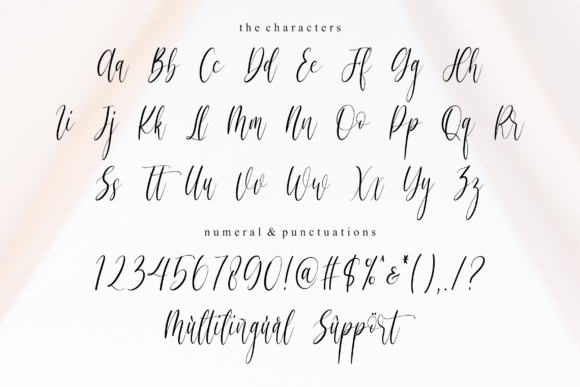 the characters
Aa Bb Cc Dd Ee Ff Gg Hh
Ii Jj Kk Ll Mm Nn Oo Pp Qq Rr
Ss Tt Uu Vv Ww Xx Yy Zz
numeral & punctuations
1234567890!@#$%^&*(),./?
Múltilingúál Sûppört